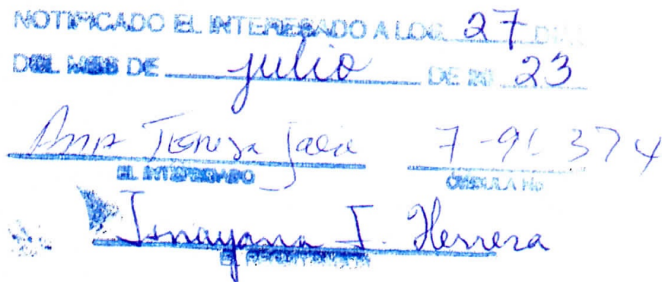 NOTIFICADO EL INTERESADO A LOS 27 DIAS
DEL MES DE julio DE 20 23
Ana Teresa 7-91 374
EL INTERESADO CEDULA No
I. Herrera